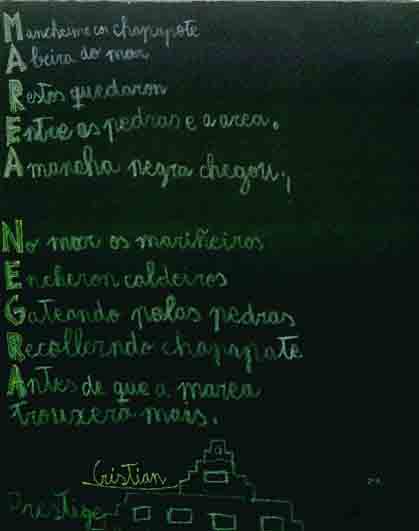 Mancheime con chapapote
A beira do mar
Restos quedaron
Entre as pedras e a area.
A mancha negra chegou.
No mar os mariñeiros
Encheron caldeiros
Gateando polas pedras
Recollendo chapapote
Antes de que a marea
trouxera mais.
Cristian
Prestige